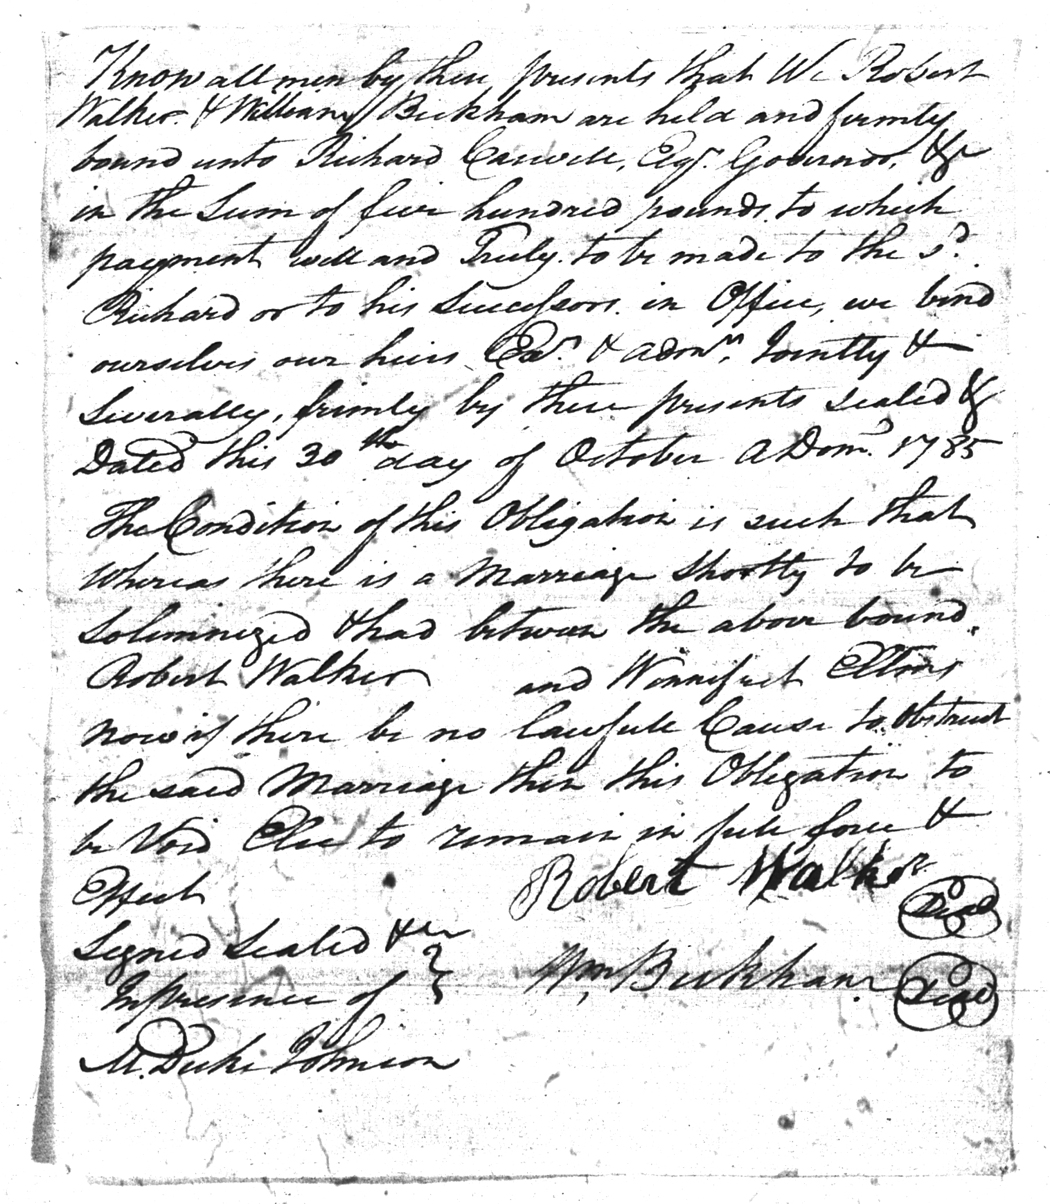 Know all men by these presents that We Robert
Walker & William Beckham are held and firmly
bound unto Richard Caswell, Esqr. Governor, &c
in the Sum of five hundred pounds to which
payment well and Truly to be made to the sd.
Richard or to his Successors in Office, we bind
ourselves our heirs Exrs. & admrs. Jointly &
Severally, firmly by these presents sealed &
Dated this 30th day of October A Domi. 1785
The Condition of this Obligation is such that
Whereas there is a Marriage Shortly to be
Solemnized & had between the above bound
Robert Walker and Winnifret
Now if there be no lawfull Cause to Obstruct
the said Marriage then this Obligation to
be Void Else to remain in full force &
Effect
Robert Walker Seal
Signed Sealed &c
In presence of
Wm, Beckham Seal
M. Duke Johnson